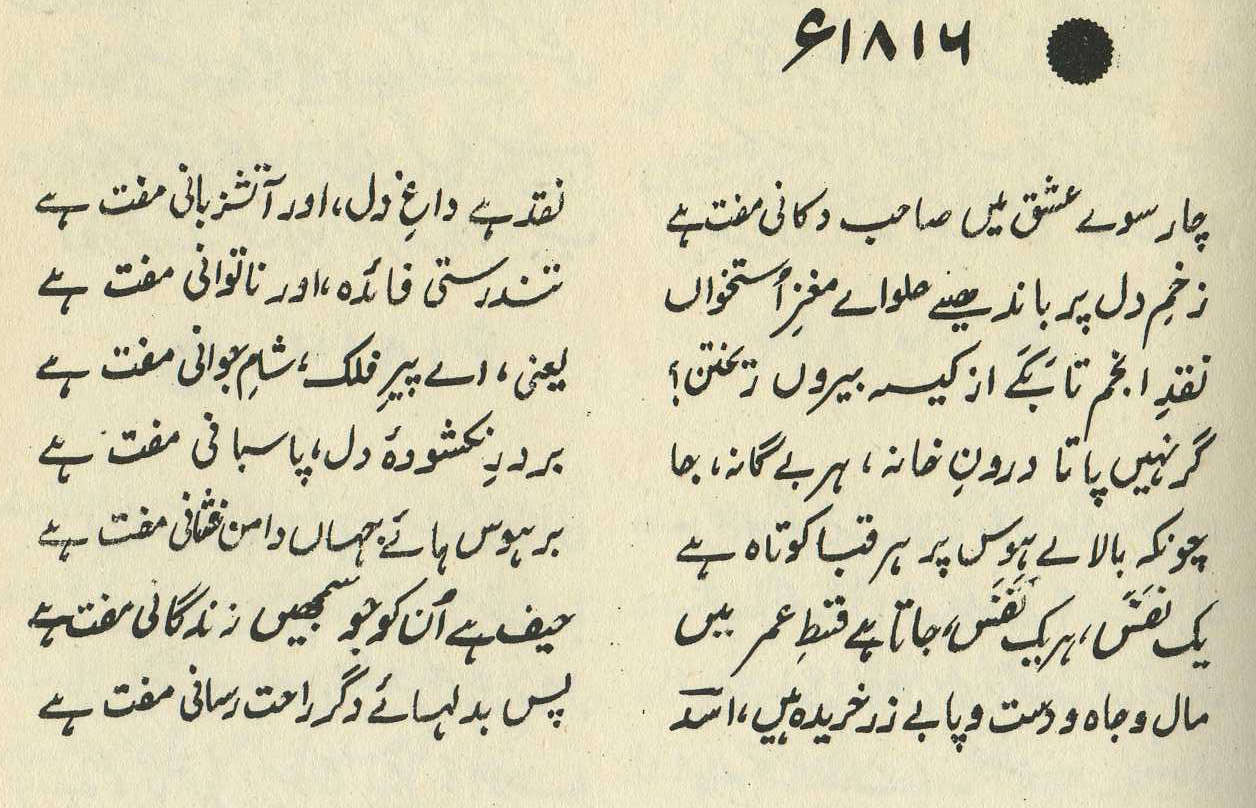 ۱۸۱۶ء
چار سوے عشق میں صاحب دکانی مفت ہے
نقد ہے داغِ دل، اور آتشزبانی مفت ہے
زخمِ دل پر باندھیے حلواے مغزِ اُستخواں
تندرستی فائدہ، اور ناتوانی مفت ہے
نقدِ انجم تا بَکَے از کیسہ بیروں ریختن؟
یعنی، اے پیرِ فلک، شامِ جوانی مفت ہے
گر نہیں پاتا درونِ خانہ، ہر بے گانہ، جا
بر درِ نکشودۂ دل، پاسبانی مفت ہے
چونکہ بالاے ہوس پر ہر قبا کوتاہ ہے
بر ہوس ہائے جہاں دامن فشانی مفت ہے
یک نَفَس، ہر یک نَفَس، جاتا ہے قسطِ عمر میں
حیف ہے اُن کو جو سمجھیں زندگانی مفت ہے
مال و جاہ و دست و پا بے زر خریدہ ہیں، اسدؔ
پس بدلہائے دگر راحت رسانی مفت ہے